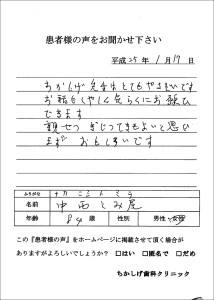 患者様の声をお聞かせ下さい
平成25年1月17日
ちかしげ先生はとてもやさしいです
お話もしやすく気らくにお願ひ
できます
親せつ ていると思ひ
ます
ふりがな ナカニシ トミヲ
名前 中西とみ尾
年齢 84歳 性別 男性・女性
この『患者様の声』をホームページに掲載させて頂く場合が
ありますがよろしいでしょうか? □はい □匿名で □だめ
ちかしげ歯科クリニック